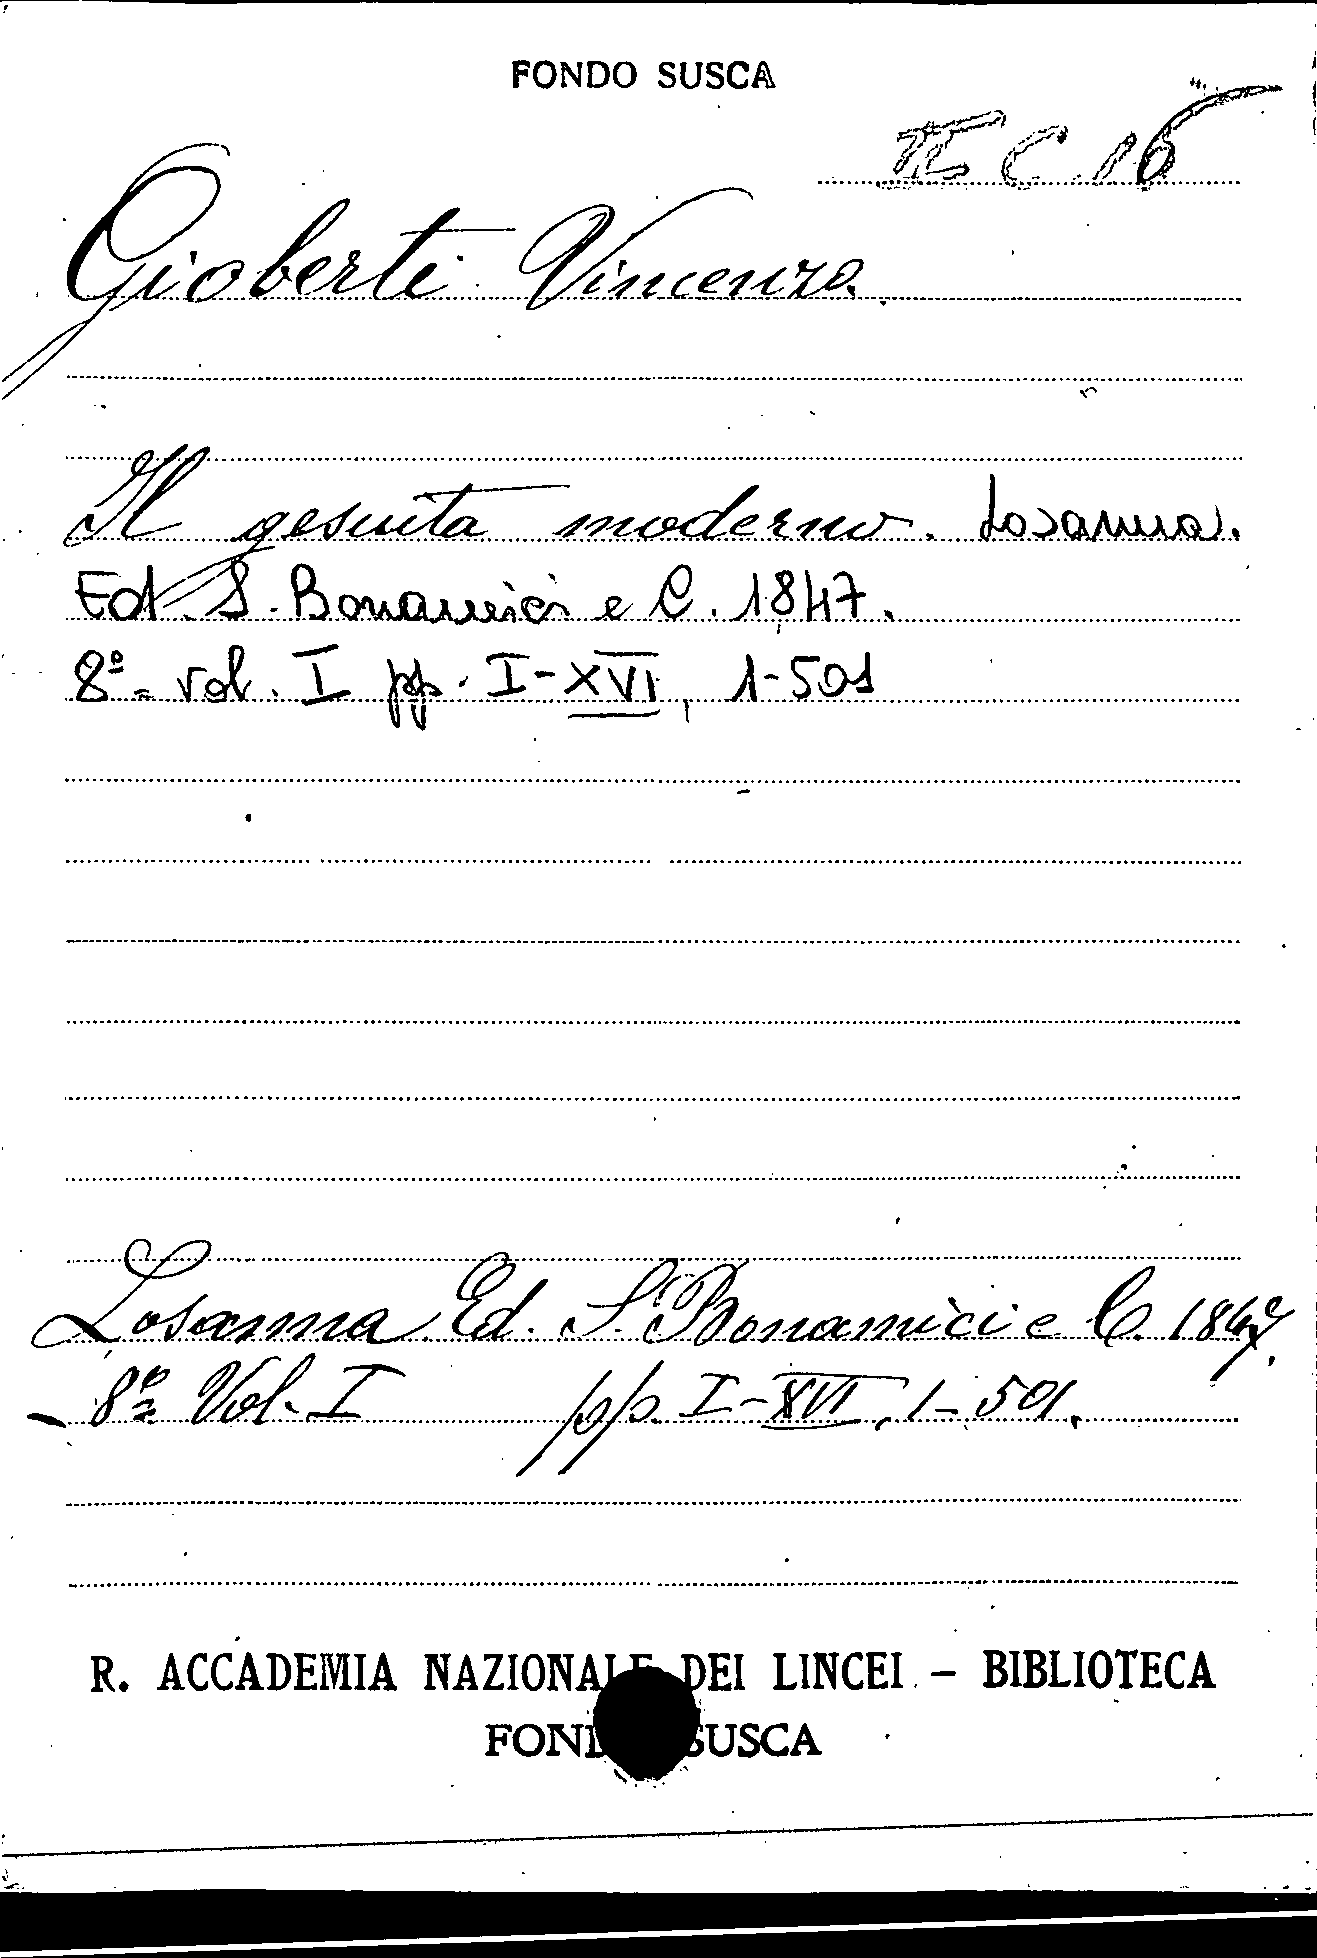 FONDO SUSCA
II C 16
Gioberti Vincenzo.
Il gesuita moderno. Losanna.
Ed. S. Bonamici e C. 1847.
8º vol. I pp. I-XVI, 1-501
Losanna Ed. S. Bonamici e C. 1847.
8º Vol. I pp. I-XVI, 1-501.
R. ACCADEMIA NAZIONALE DEI LINCEI - BIBLIOTECA
FONDO SUSCA